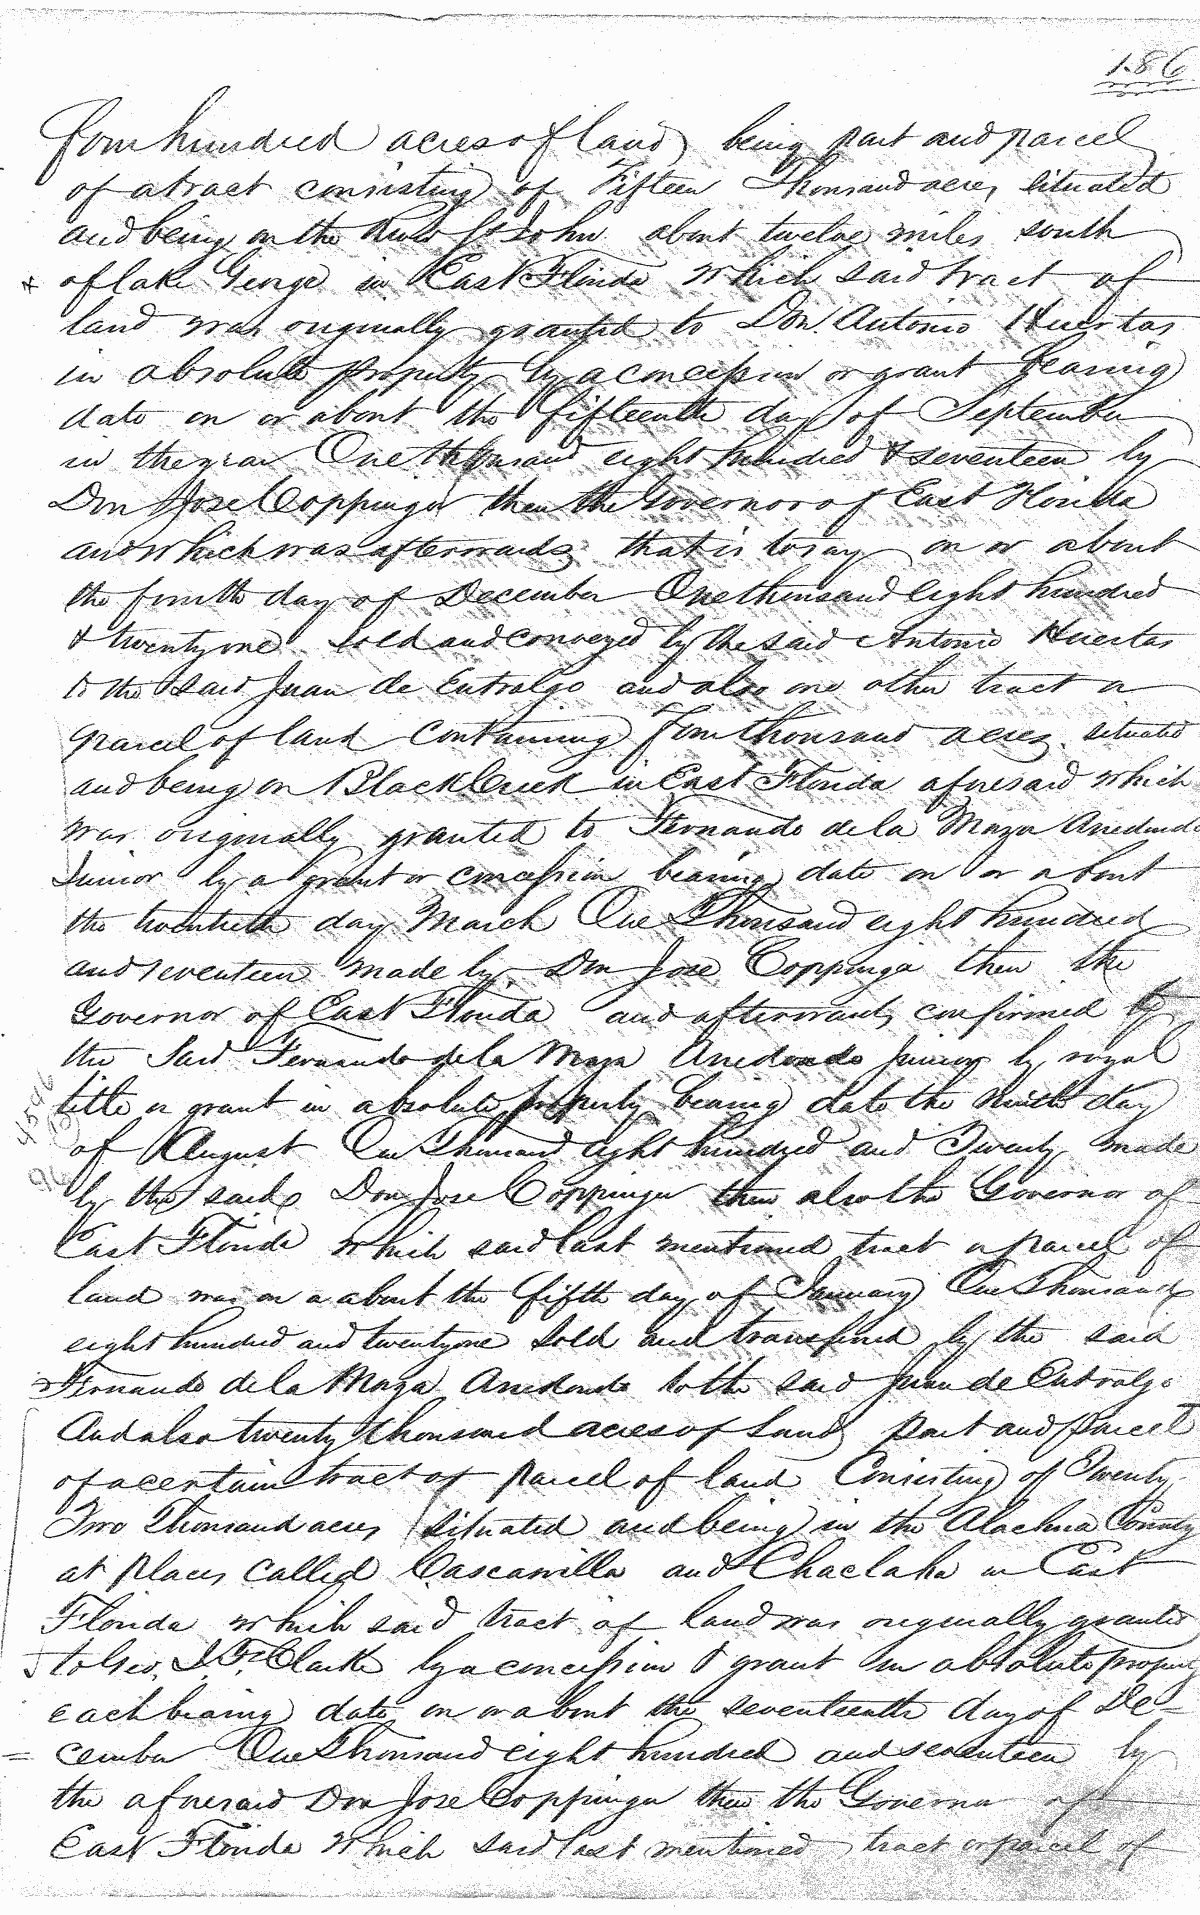 186
Four hundred acres of land being part and parcel
of a tract consisting of Fifteen Thousand acres situated
and being on the River St John about twelve miles south
of lake George in East Florida which said tract of
land was originally granted to Don Antonio Huertas
in absolute property by a concession or grant bearing
date on or about the fifteenth day of September
in the year One thousand eight hundred & seventeen by
Don Jose Coppinger then the Governor of East Florida
and which was afterwards that is to say on or about
the fourth day of December One thousand eight hundred
& twenty one sold and conveyed by the said Antonio Huertas
to the said Juan de Entralgo and also one other tract or
parcel of land containing Four thousand acres situated
and being on Black Creek in East Florida aforesaid which
was originally granted to Fernando de la Maza Arredondo
Junior by a grant or concession bearing date on or about
the twentieth day March One Thousand eight hundred
and seventeen made by Don Jose Coppinger then the
Governor of East Florida and afterwards confirmed to
the Said Fernando de la Maza Arredondo Junior by royal
title or grant in absolute property bearing date the Ninth day
of August One Thousand eight hundred and Twenty made
by the said Don Jose Coppinger then also the Governor of
East Florida which said last mentioned tract or parcel of
land was on or about the fifth day of January One Thousand
eight hundred and twenty one sold and transferred by the said
Fernando de la Maza Arredondo to the said Juan de Entralgo
And also twenty thousand acres of Land part and parcel
of a certain tract or parcel of land Consisting of Twenty
Two Thousand acres situated and being in the Alachua County
at places called Cascawilla and Chaclaha in East
Florida which said tract of land was originally granted
to Geo. J. F. Clarke by a concession & grant in absolute property
each bearing date on or about the seventeenth day of De-
cember One Thousand eight hundred and seventeen by
the aforesaid Don Jose Coppinger then the Governor of
East Florida which said last mentioned tract or parcel of